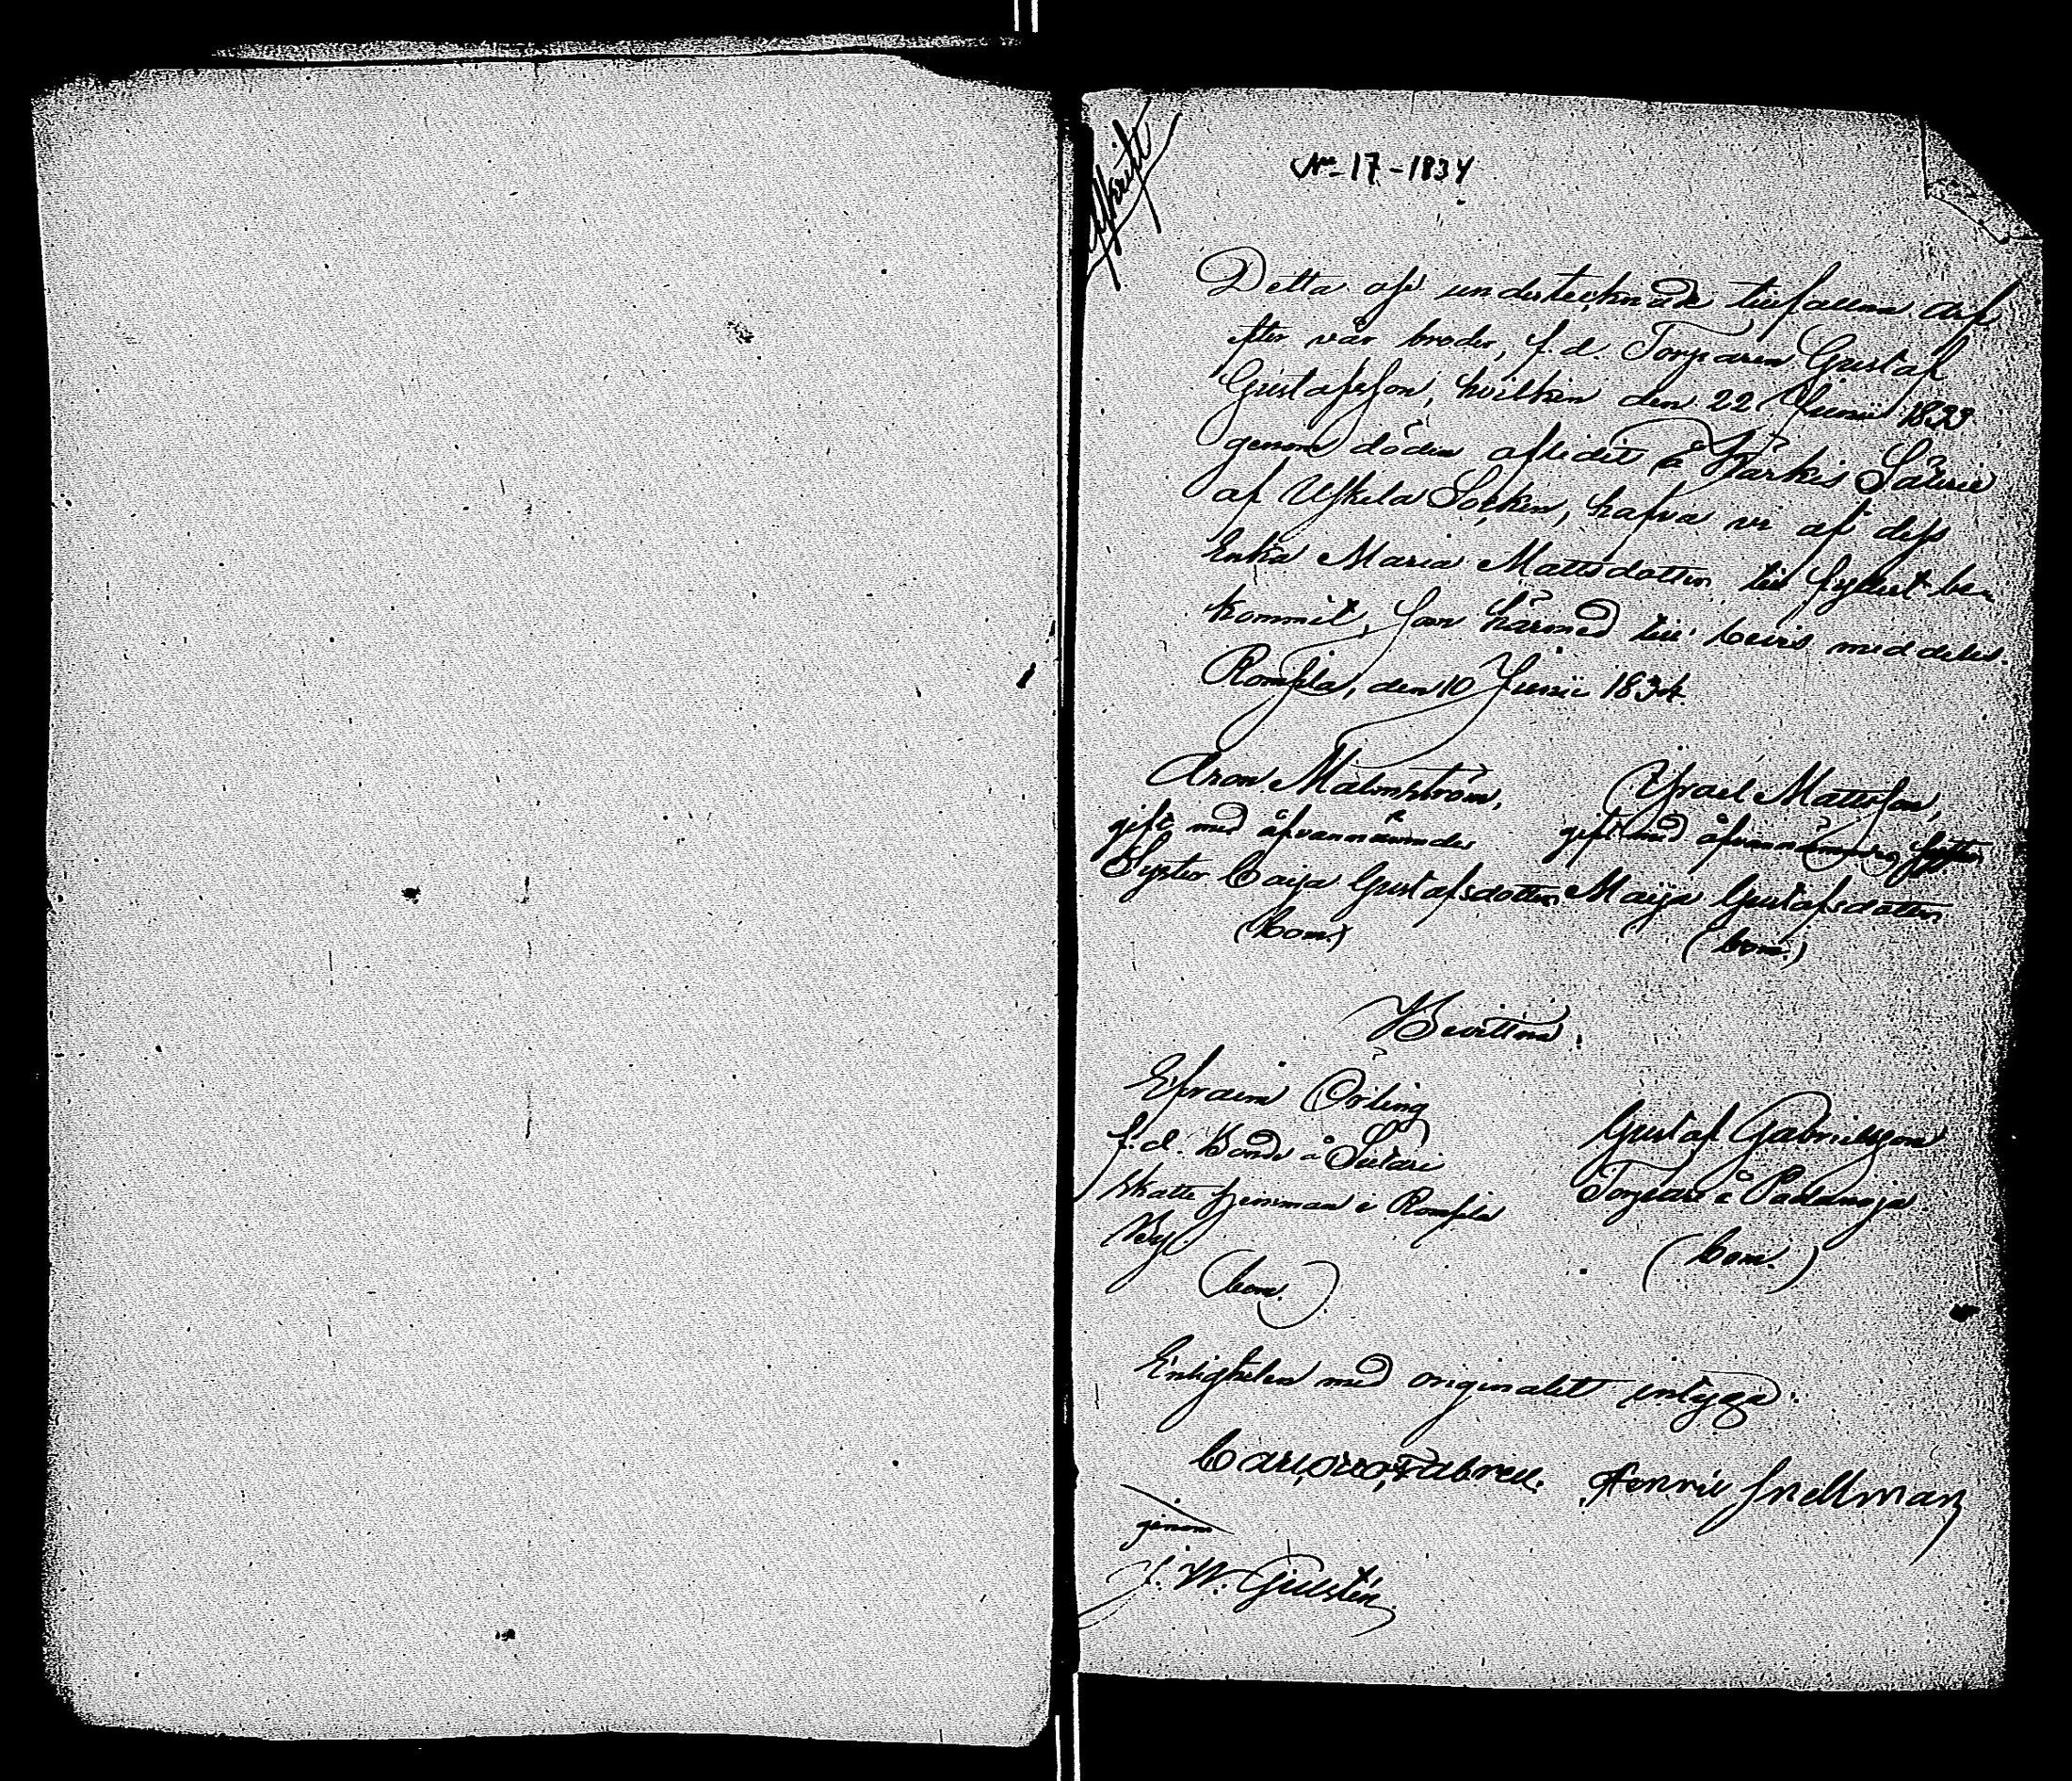 Afskrift
No 17 - 1834
Detta oss undertecknade tillfallna arf
efter vår broder, f. d. Torparen Gustaf
Gustafsson, hvilken den 22 Junii 1833
genom döden aflidit å Kärkis Säteri
af Uskela Socken, hafva vi af dess
Enka Maria Mattsdotter till fyllest be-
kommit, som härmed till bevis meddeles.
Romsila, den 10 Junii 1834.
Aron Malmström,
gift med åfvannämndes
Syster Caisa Gustafsdotter
(bom.)
Israel Mattsson,
gift med åfvannämndes Syster
Maija Gustafsdotter
(bom.)
Bevittna:
Efraim Örling
f. d. Bonde å Sutari
Skatte hemman i Romsila
By.
(bom.)
Gustaf Gabrielsson
Torpare å Paddanoja
(bom.)
Enligheten med originalet intyga:
Carl Fabrell. Henric Snellman
genom
J. W. Gustén